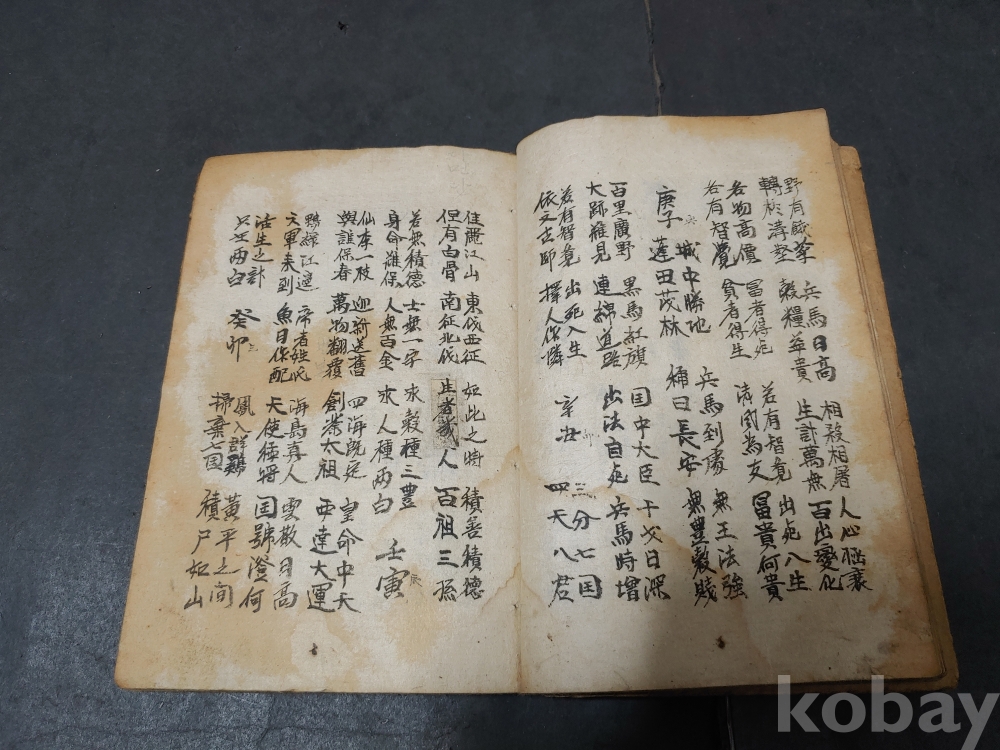 野有餓莩 兵馬日高 相殺相屠 人心極哀
轉於溝壑 穀糧革貴 生計萬無 百出變化
各物高價 冨者得死 若有智覚 出死入生
若有智覚 貧者得生 清国為友 冨貴何貴
城中勝地 兵馬到處 無王法強
庚子 蓮田茂林 桶曰長安 無豊穀賤
百里廣野 黒馬紅旗 国中大臣 干戈日深
大跡雖見 連綿道路 出法自死 兵馬時增
若有智覚 出死入生 辛丑 三分七国
依文古師 擇人你憐 四天八君
佳麗江山 東伐西征 如此之時 積善積德
但有白骨 南征北伐 生者幾人 百祖三孫
若無積德 士無一字 求穀種三豊
身命難保 人無百金 求人種両白 壬寅
仙李一枝 迎新送舊 四海既定 皇命中天
與誰保春 萬物翻覆 創業太祖 西達大運
鴨綠江邊 帝者姓氏 海島真人 雲散月高
大軍来到 魚目你配 天使將 国號澄何
活生之計 癸卯 鳳入群鷄 黃平之間
只在両白 掃棄七国 積尸如山
kobay